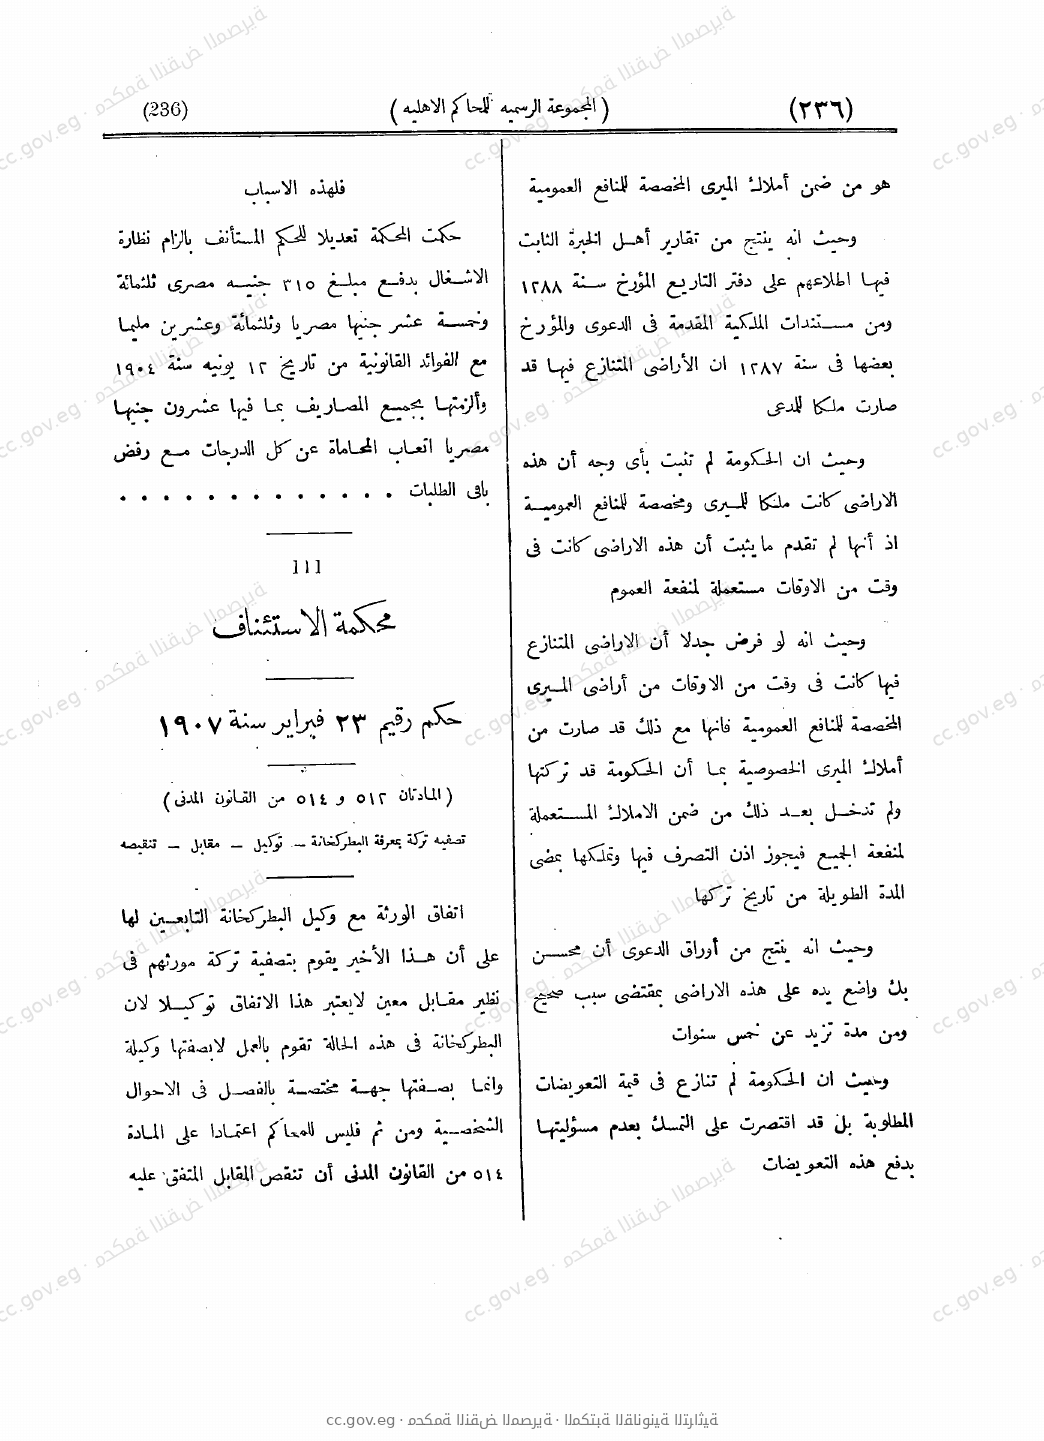 (٢٣٦)
(المجموعة الرسميه للمحاكم الاهليه)
(236)
هو من ضمن أملاك الميرى المخصصة للمنافع العمومية
وحيث انه ينتج من تقارير أهل الخبرة الثابت
فيها اطلاعهم على دفتر التاريع المؤرخ سنة ١٢٨٨
ومن مستندات الملكية المقدمة فى الدعوى والمؤرخ
بعضها فى سنة ١٢٨٧ ان الأراضى المتنازع فيها قد
صارت ملكا للمدعى
وحيث ان الحكومة لم تثبت بأى وجه أن هذه
الاراضى كانت ملكا للميرى ومخصصة للمنافع العمومية
اذ أنها لم تقدم مايثبت أن هذه الاراضى كانت فى
وقت من الاوقات مستعملة لمنفعة العموم
وحيث انه لو فرض جدلا أن الاراضى المتنازع
فيها كانت فى وقت من الاوقات من أراضى الميرى
المخصصة للمنافع العمومية فانها مع ذلك قد صارت من
أملاك الميرى الخصوصية بما أن الحكومة قد تركتها
ولم تدخل بعد ذلك من ضمن الاملاك المستعملة
لمنفعة الجميع فيجوز اذن التصرف فيها وتملكها بمضى
المدة الطويلة من تاريخ تركها
وحيث انه ينتج من أوراق الدعوى أن محسن
بك واضع يده على هذه الاراضى بمقتضى سبب صحيح
ومن مدة تزيد عن خمس سنوات
وحيث ان الحكومة لم تنازع فى قيمة التعويضات
المطلوبة بل قد اقتصرت على التمسك بعدم مسؤليتها
بدفع هذه التعويضات
فلهذه الاسباب
حكمت المحكمة تعديلا للحكم المستأنف بالزام نظارة
الاشغال بدفع مبلغ ٣١٥ جنيه مصرى ثلثمائة
وخمسة عشر جنيها مصريا وثلثمائة وعشرين مليما
مع الفوائد القانونية من تاريخ ١٢ يونيه سنة ١٩٠٤
وألزمتها بجميع المصاريف بما فيها عشرون جنيها
مصريا اتعاب المحاماة عن كل الدرجات مع رفض
باقى الطلبات . . . . . . . . . . . . .
111
محكمة الاستئناف
حكم رقيم ٢٣ فبراير سنة ١٩٠٧
(المادتان ٥١٢ و ٥١٤ من القانون المدنى)
تصفيه تركة بمعرفة البطركخانة — توكيل — مقابل — تنقيصه
اتفاق الورثة مع وكيل البطركخانة التابعين لها
على أن هذا الأخير يقوم بتصفية تركة مورثهم فى
نظير مقابل معين لايعتبر هذا الاتفاق توكيلا لان
البطركخانة فى هذه الحالة تقوم بالعمل لابصفتها وكيلة
وانما بصفتها جهة مختصة بالفصل فى الاحوال
الشخصية ومن ثم فليس للمحاكم اعتمادا على المادة
٥١٤ من القانون المدنى أن تنقص المقابل المتفق عليه
cc.gov.eg · محكمة النقض المصرية · المكتبة القانونية التراثية